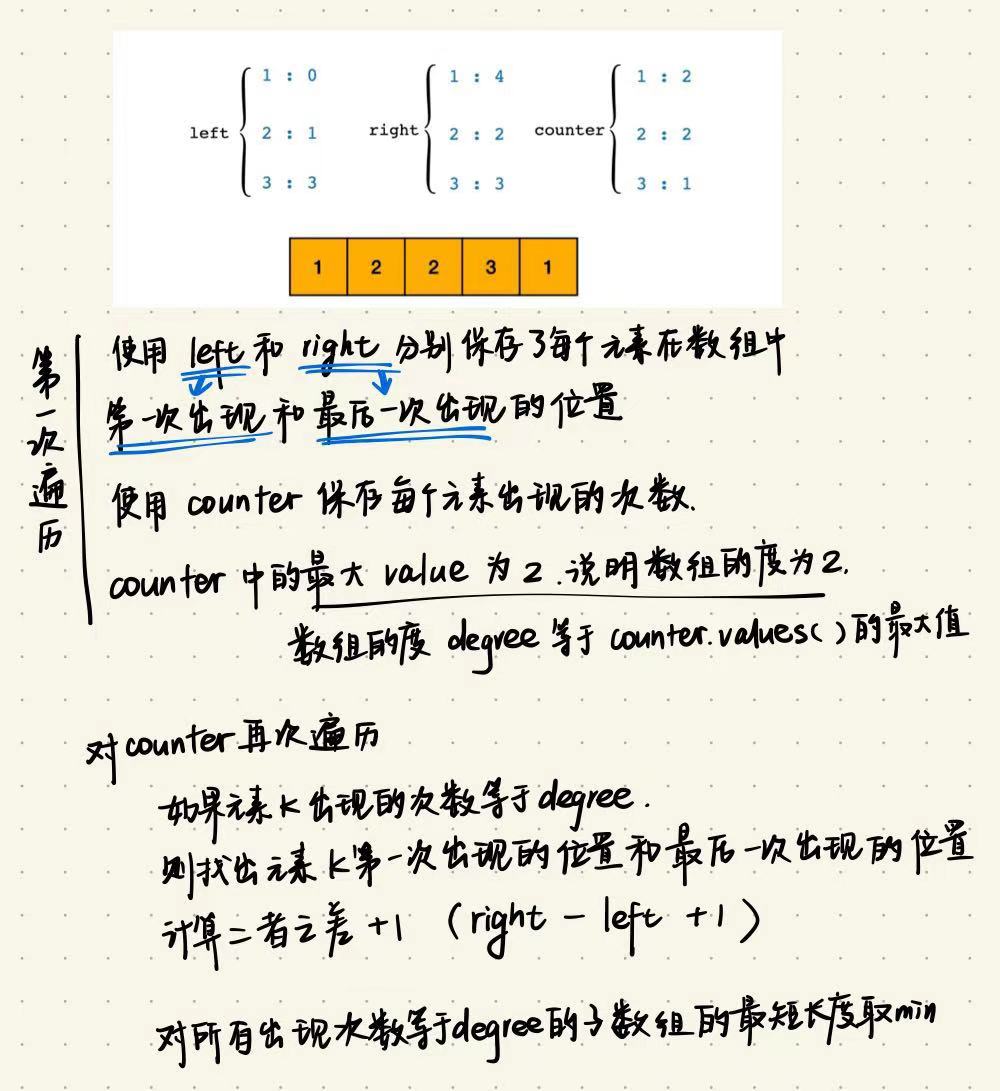 left
1 : 0
2 : 1
3 : 3
right
1 : 4
2 : 2
3 : 3
counter
1 : 2
2 : 2
3 : 1
1 2 2 3 1
第一次遍历
使用 left 和 right 分别保存了每个元素在数组中
第一次出现和最后一次出现的位置
使用 counter 保存每个元素出现的次数.
counter 中的最大 value 为 2.说明数组的度为2.
数组的度 degree 等于 counter.values()的最大值
对counter再次遍历
如果元素 k 出现的次数等于degree.
则找出元素 k第一次出现的位置和最后一次出现的位置
计算二者之差 +1 (right - left +1)
对所有出现次数等于degree的子数组的最短长度取min